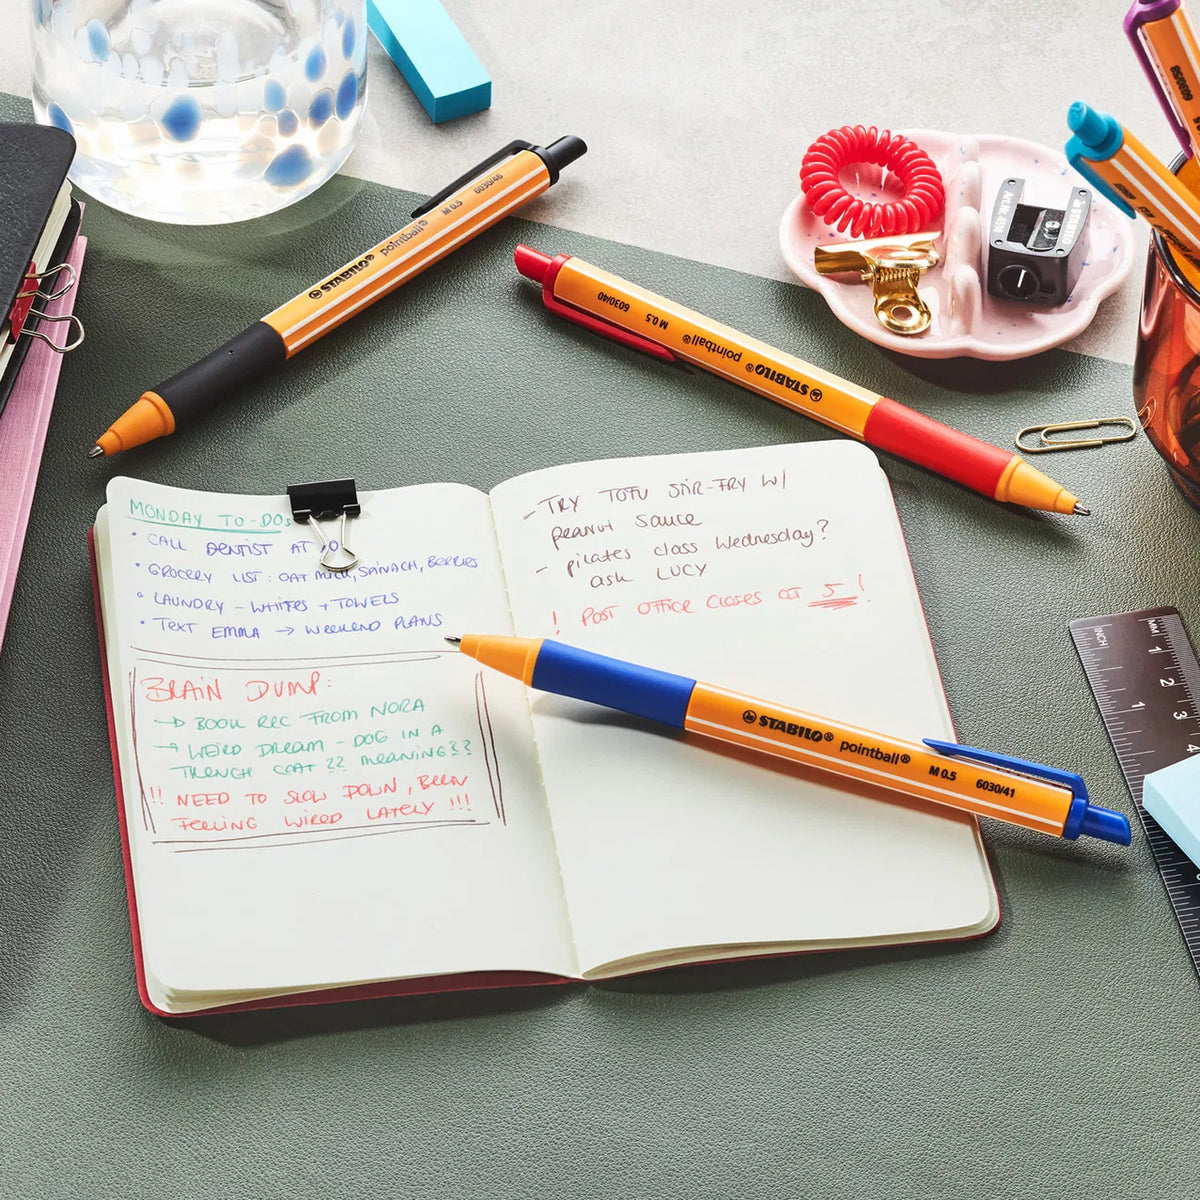 STABILO® pointball® M 0.5 6030/46
STABILO® pointball® M 0.5 6030/40
STABILO
MONDAY TO-DOs
• CALL DENTIST AT 10
• GROCERY LIST: OAT MILK, SPINACH, BERRIES
• LAUNDRY - WHITES + TOWELS
• TEXT EMMA → WEEKEND PLANS
BRAIN DUMP:
→ BOOK REC FROM NORA
→ WEIRD DREAM - DOG IN A
TRENCH COAT ?? MEANING??
!! NEED TO SLOW DOWN, BEEN
FEELING WIRED LATELY !!!
- TRY TOFU STIR-FRY W/
peanut sauce
- pilates class Wednesday?
ask LUCY
! POST OFFICE CLOSES AT 5 !
STABILO® pointball® M 0.5 6030/41
INCH
MM 1
2
3
4
1